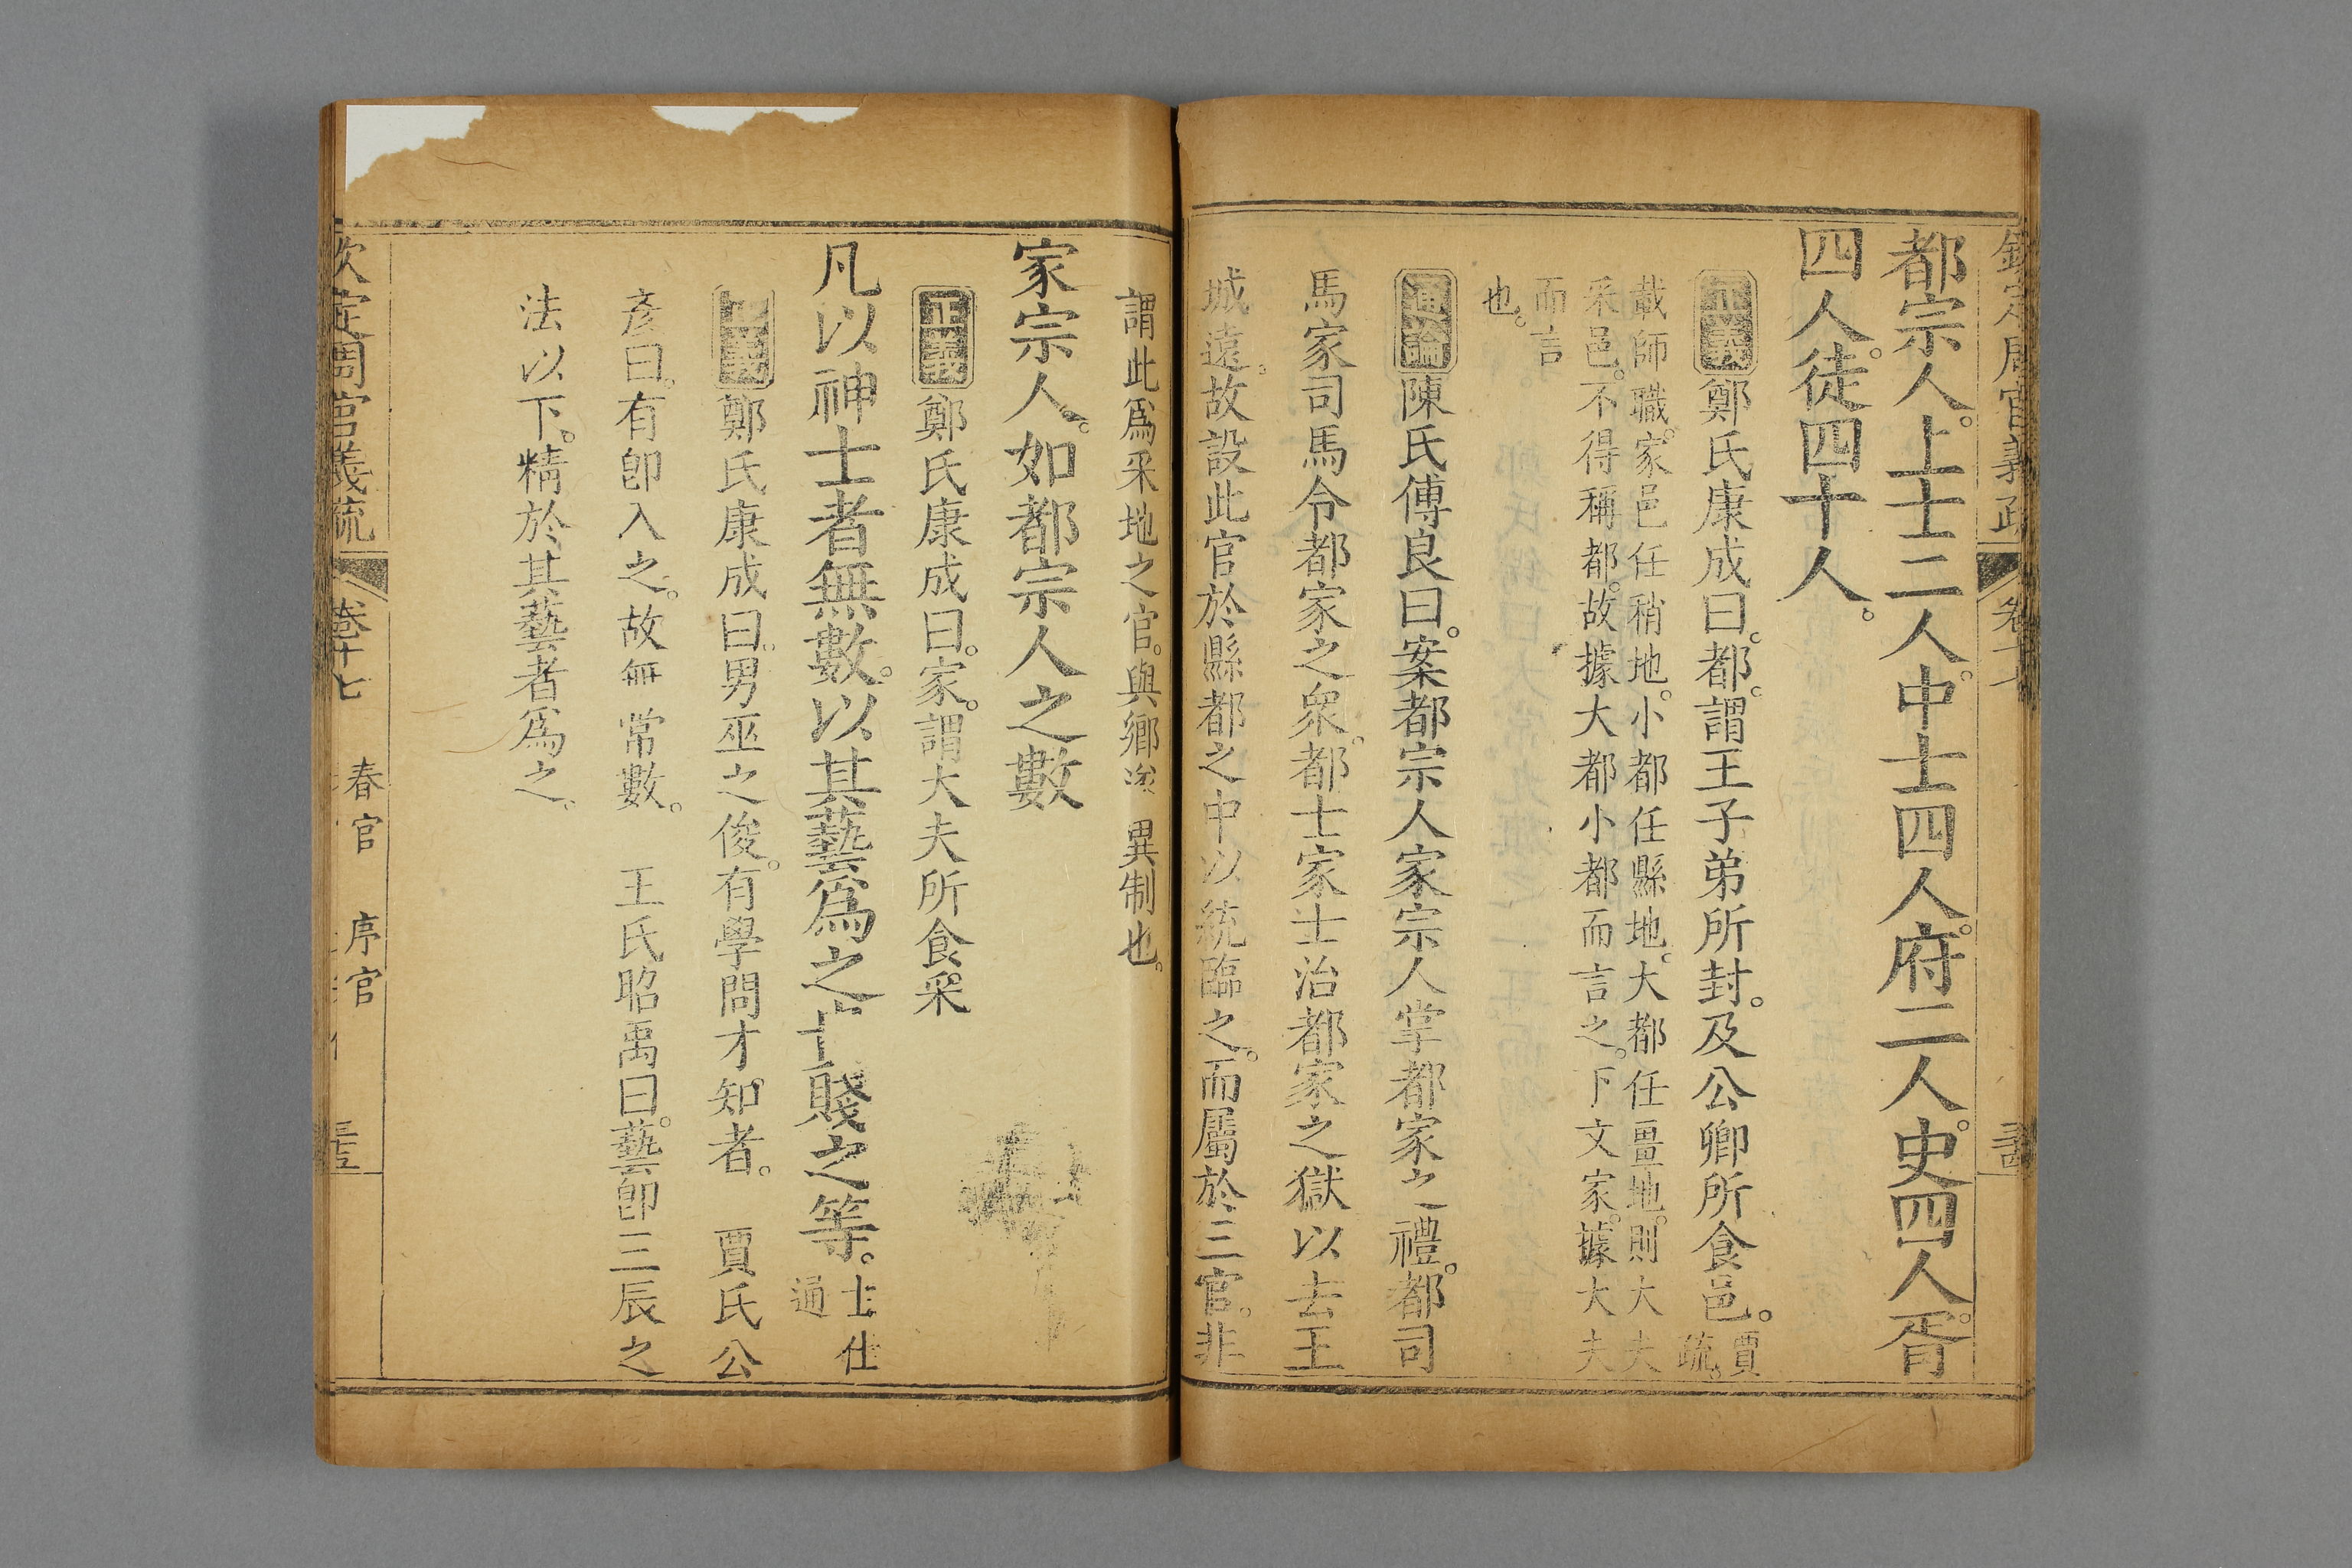 欽定周官義疏 卷十七
都宗人。上士二人。中士四人。府二人。史四人。胥
四人。徒四十人。
正義鄭氏康成曰。都。謂王子弟所封。及公卿所食邑。賈疏。
載師職。家邑任稍地。小都任縣地。大都任畺地。則大夫
采邑。不得稱都。故據大都小都而言之。下文家。據大夫
而言
也。
通論陳氏傅良曰。案都宗人家宗人掌都家之禮。都司
馬家司馬令都家之衆。都士家士治都家之獄以去王
城遠。故設此官於縣都之中以統臨之。而屬於三官。非
謂此爲采地之官。與鄉遂異制也。
家宗人。如都宗人之數
正義鄭氏康成曰。家。謂大夫所食采
凡以神士者無數。以其藝爲之貴賤之等。士仕
通
正義鄭氏康成曰。男巫之俊。有學問才知者。 賈氏公
彥曰。有卽入之。故無常數。 王氏昭禹曰。藝卽三辰之
法以下。精於其藝者爲之。
欽定周官義疏 卷十七 春官 序官